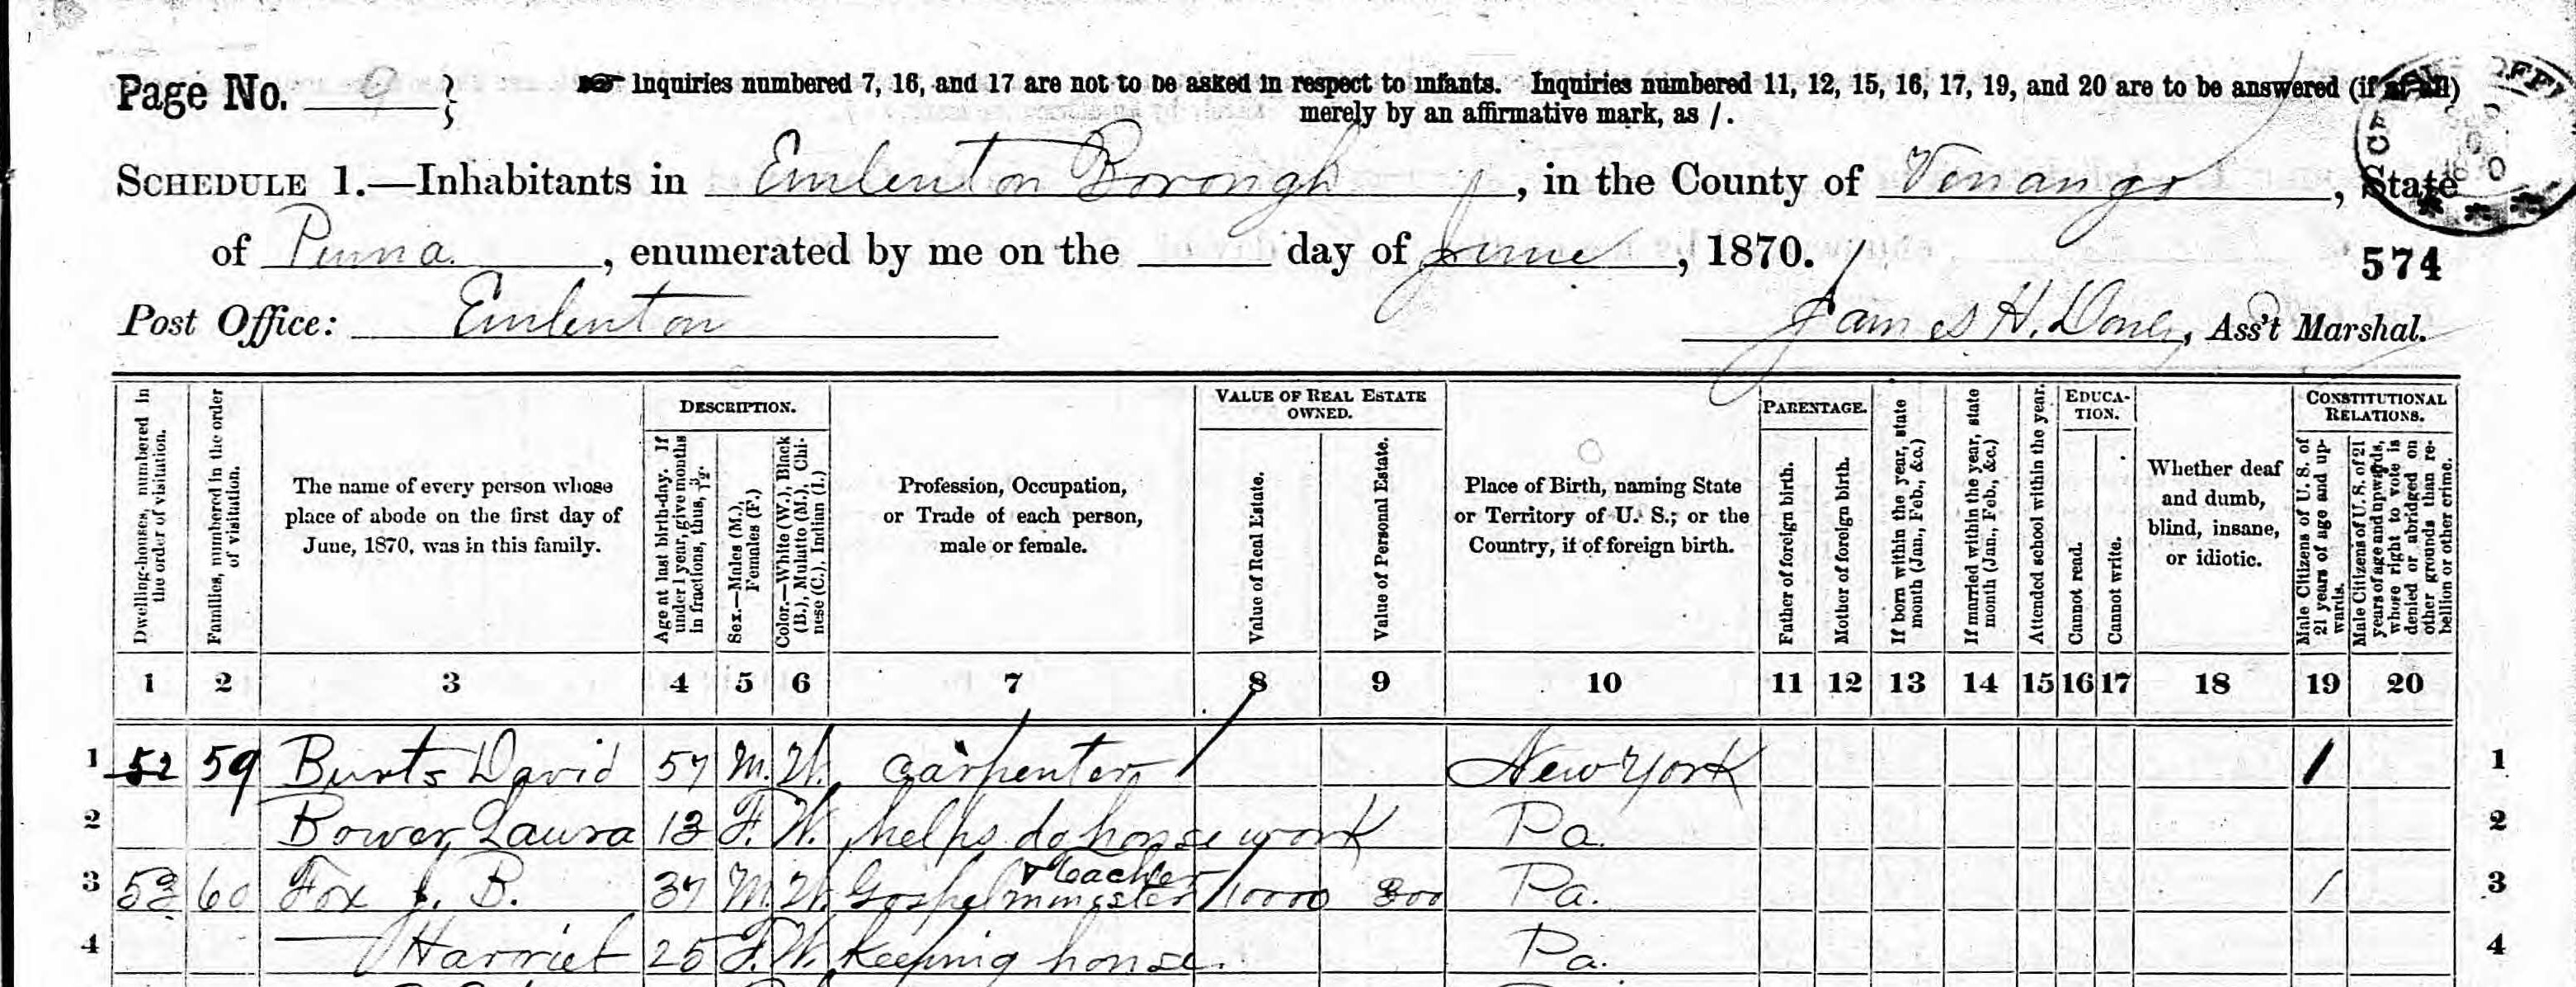 Page No. 9
Inquiries numbered 7, 16, and 17 are not to be asked in respect to infants. Inquiries numbered 11, 12, 15, 16, 17, 19, and 20 are to be answered (if at all)
merely by an affirmative mark, as /.
SCHEDULE 1.—Inhabitants in Emlenton Borough, in the County of Venango, State
of Penna., enumerated by me on the day of June, 1870.
574
Post Office: Emlenton James H. Ass't Marshal.
Dwelling-houses, numbered in the order of visitation.
Families, numbered in the order of visitation.
The name of every person whose place of abode on the first day of June, 1870, was in this family.
DESCRIPTION.
Age at last birth-day. If under 1 year, give months in fractions, thus, 3/12.
Sex.—Males (M.), Females (F.)
Color.—White (W.), Black (B.), Mulatto (M.), Chinese (C.), Indian (I.)
Profession, Occupation, or Trade of each person, male or female.
VALUE OF REAL ESTATE OWNED.
Value of Real Estate.
Value of Personal Estate.
Place of Birth, naming State or Territory of U. S.; or the Country, if of foreign birth.
PARENTAGE.
Father of foreign birth.
Mother of foreign birth.
If born within the year, state month (Jan., Feb., &c.)
If married within the year, state month (Jan., Feb., &c.)
Attended school within the year.
EDUCATION.
Cannot read.
Cannot write.
Whether deaf and dumb, blind, insane, or idiotic.
CONSTITUTIONAL RELATIONS.
Male Citizens of U. S. of 21 years of age and upwards.
Male Citizens of U. S. of 21 years of age and upwards, whose right to vote is denied or abridged on other grounds than rebellion or other crime.
1 2 3 4 5 6 7 8 9 10 11 12 13 14 15 16 17 18 19 20
1 52 59 Burts David 57 M. W. Carpenter New York / 1
2 Bower Laura 13 F. W. helps do house work Pa. 2
3 53 60 Fox J. B. 37 M. W. Gospel minister & teacher 10000 800 Pa. / 3
4 — Harriet 25 F. W. Keeping house. Pa. 4